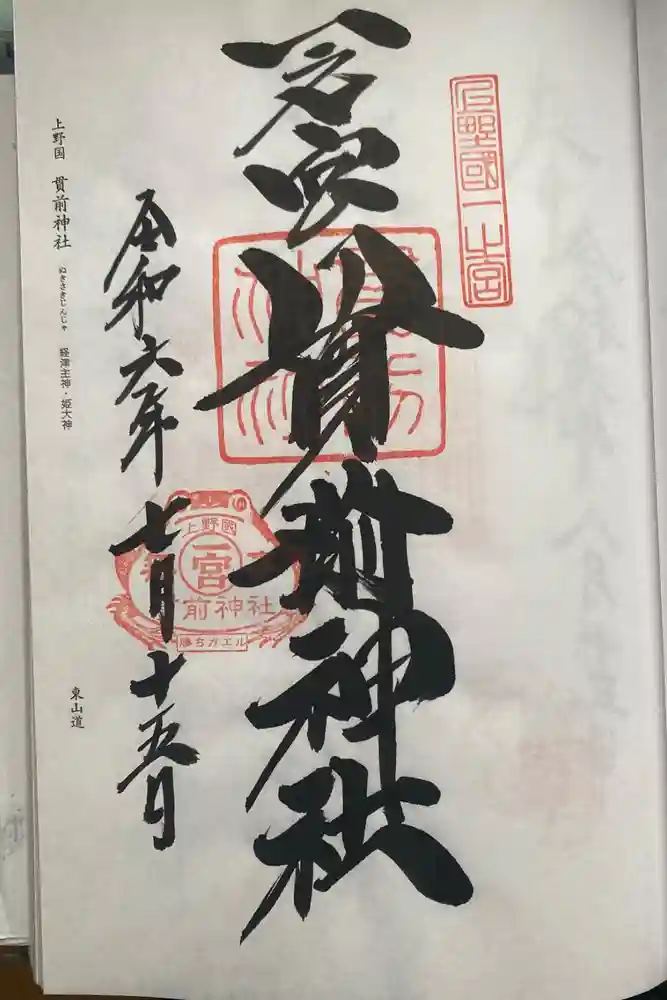 上野國一之宮
一之宮
貫前神社
令和六年七月十五日
上野國
一宮
前神社
勝ちガエル
上野国 貫前神社 ぬきさきじんじゃ 経津主神・姫大神
東山道